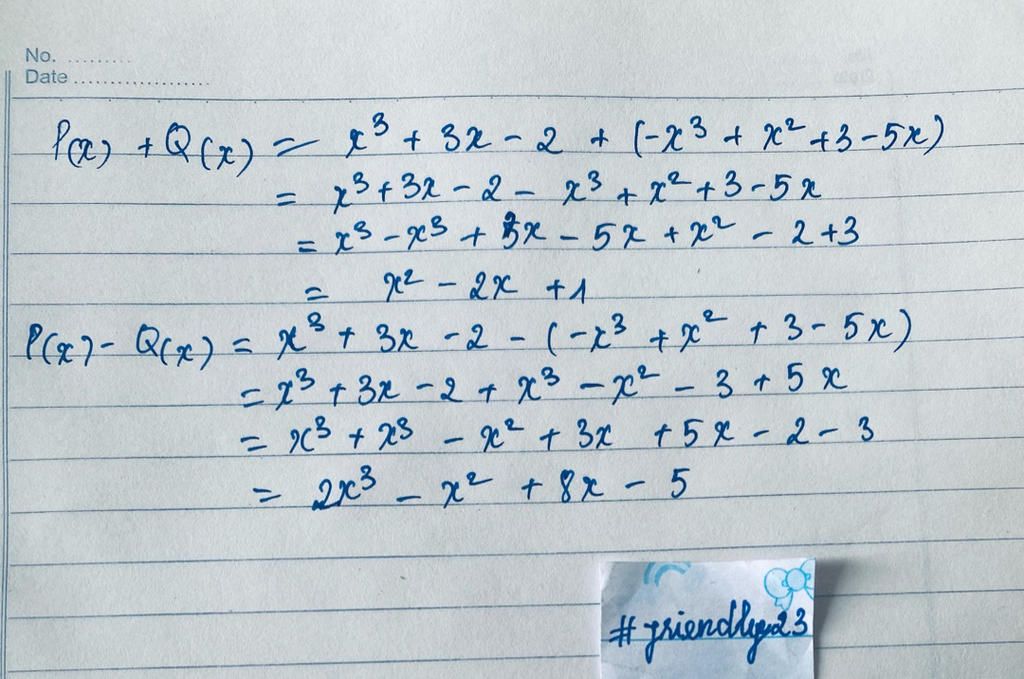 No. .........
Date ..................
P(x) + Q(x) = x³ + 3x - 2 + (-x³ + x² + 3 - 5x)
= x³ + 3x - 2 - x³ + x² + 3 - 5x
= x³ - x³ + 3x - 5x + x² - 2 + 3
= x² - 2x + 1
P(x) - Q(x) = x³ + 3x - 2 - (-x³ + x² + 3 - 5x)
= x³ + 3x - 2 + x³ - x² - 3 + 5x
= x³ + x³ - x² + 3x + 5x - 2 - 3
= 2x³ - x² + 8x - 5
#friendly23